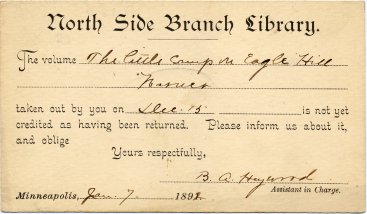 North Side Branch Library.
The volume The little Camp on Eagle Hill
Warner
taken out by you on Dec. 15 is not yet
credited as having been returned. Please inform us about it,
and oblige
Yours respectfully,
B. A. Heywood
Assistant in Charge.
Minneapolis, Jan. 7 1892.